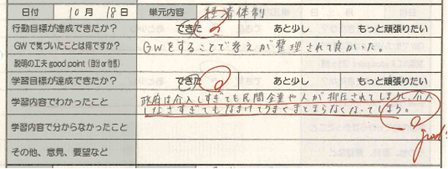 日付 10月18日 単元内容 経済体制
行動目標が達成できたか? できた あと少し もっと頑張りたい
GWで気づいたことは何ですか? GWをすることで考えが整理されて良かった。
説明の工夫good point(自分 or 他者)
学習目標が達成できたか? できた あと少し もっと頑張りたい
学習内容でわかったこと 政府は介入しすぎても民間企業や人が抑圧されてしまうし、介入
しなさすぎてもなまけてうまくまとまらなくなってしまう。
学習内容で分からなかったこと
good!
その他、意見、要望など